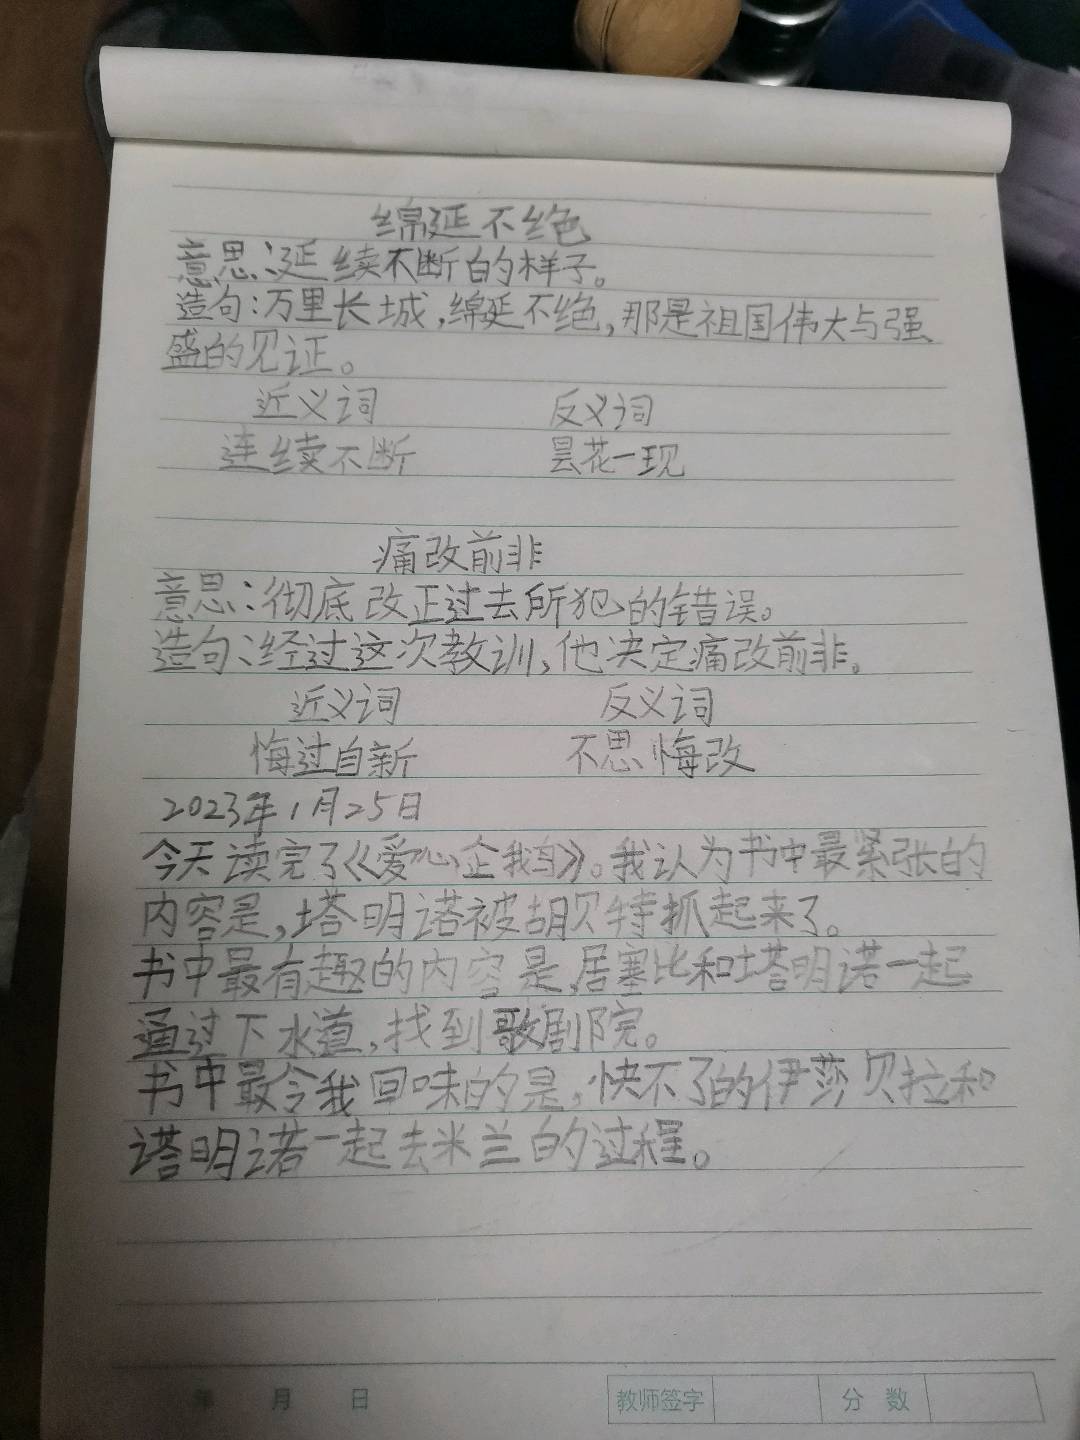 绵延不绝
意思:延续不断的样子。
造句:万里长城,绵延不绝,那是祖国伟大与强
盛的见证。
近义词 反义词
连续不断 昙花一现
痛改前非
意思:彻底改正过去所犯的错误。
造句:经过这次教训,他决定痛改前非。
近义词 反义词
悔过自新 不思悔改
2023年1月25日
今天读完了《爱心企鹅》。我认为书中最紧张的
内容是,塔明诺被胡贝特抓起来了。
书中最有趣的内容是,居塞比和塔明诺一起
通过下水道,找到歌剧院。
书中最令我回味的是,快不了的伊莎贝拉和
塔明诺一起去米兰的过程。
年 月 日 教师签字 分 数